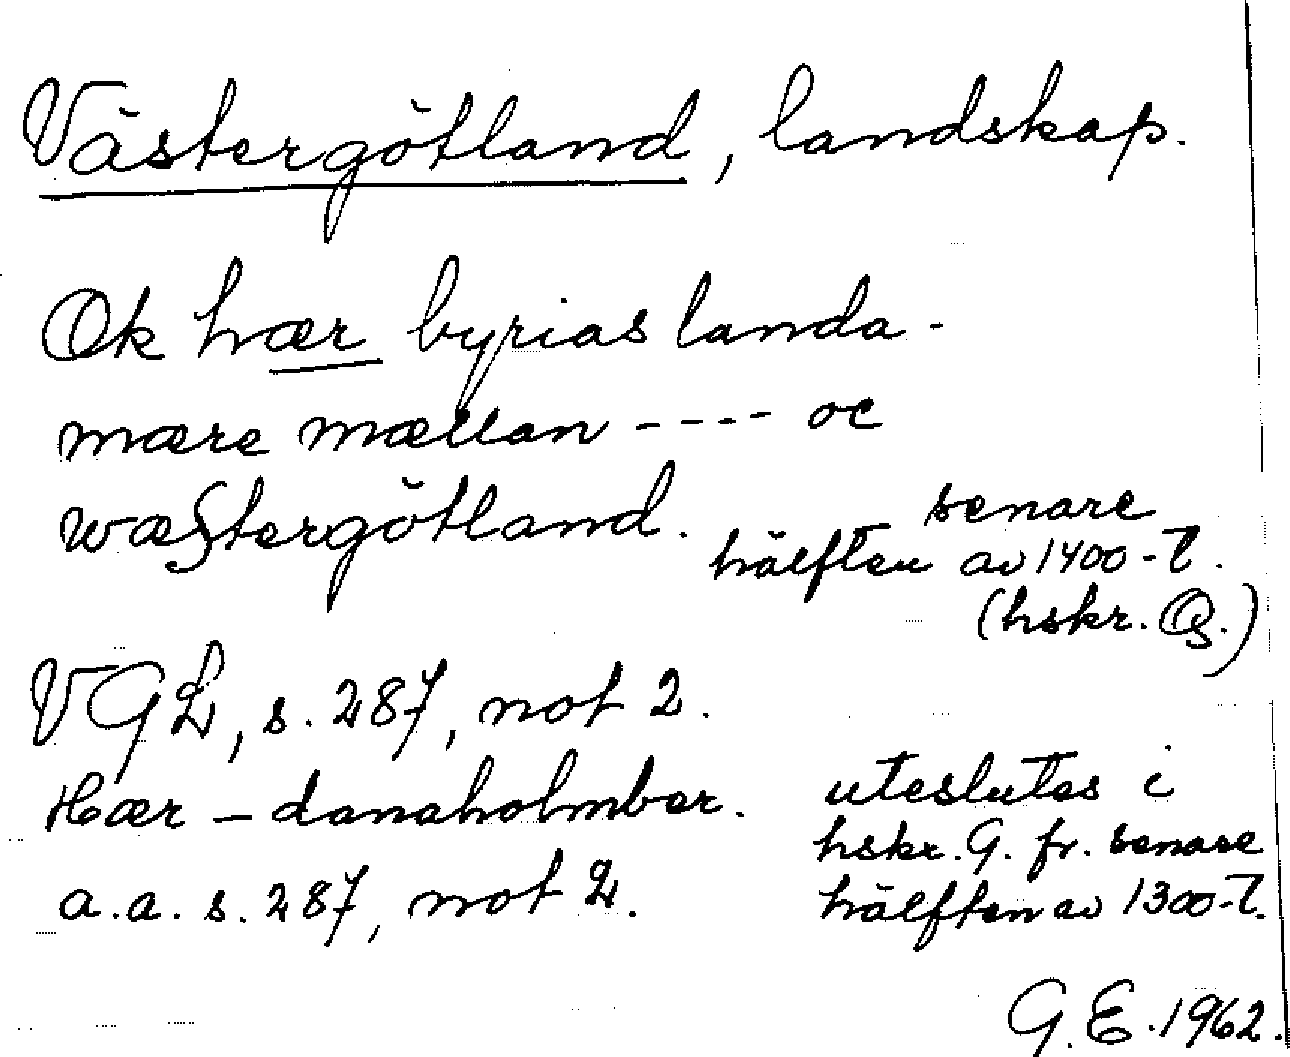 Västergötland, landskap.
Ok hær byrias landa-
mære mællan ---- oc
wæstergötland.
senare
hälften av 1400-t.
(hskr. Q.)
VGL, s. 287, not 2.
Hær – danaholmber.
a.a. s. 287, not 2.
uteslutes i
hskr. G. fr. senare
hälften av 1300-t.
G.E. 1962.